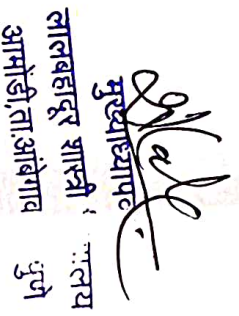 मुख्याध्यापक
लालबहादूर शास्त्री लय
आमोंडी,ता.आंबेगाव पुणे